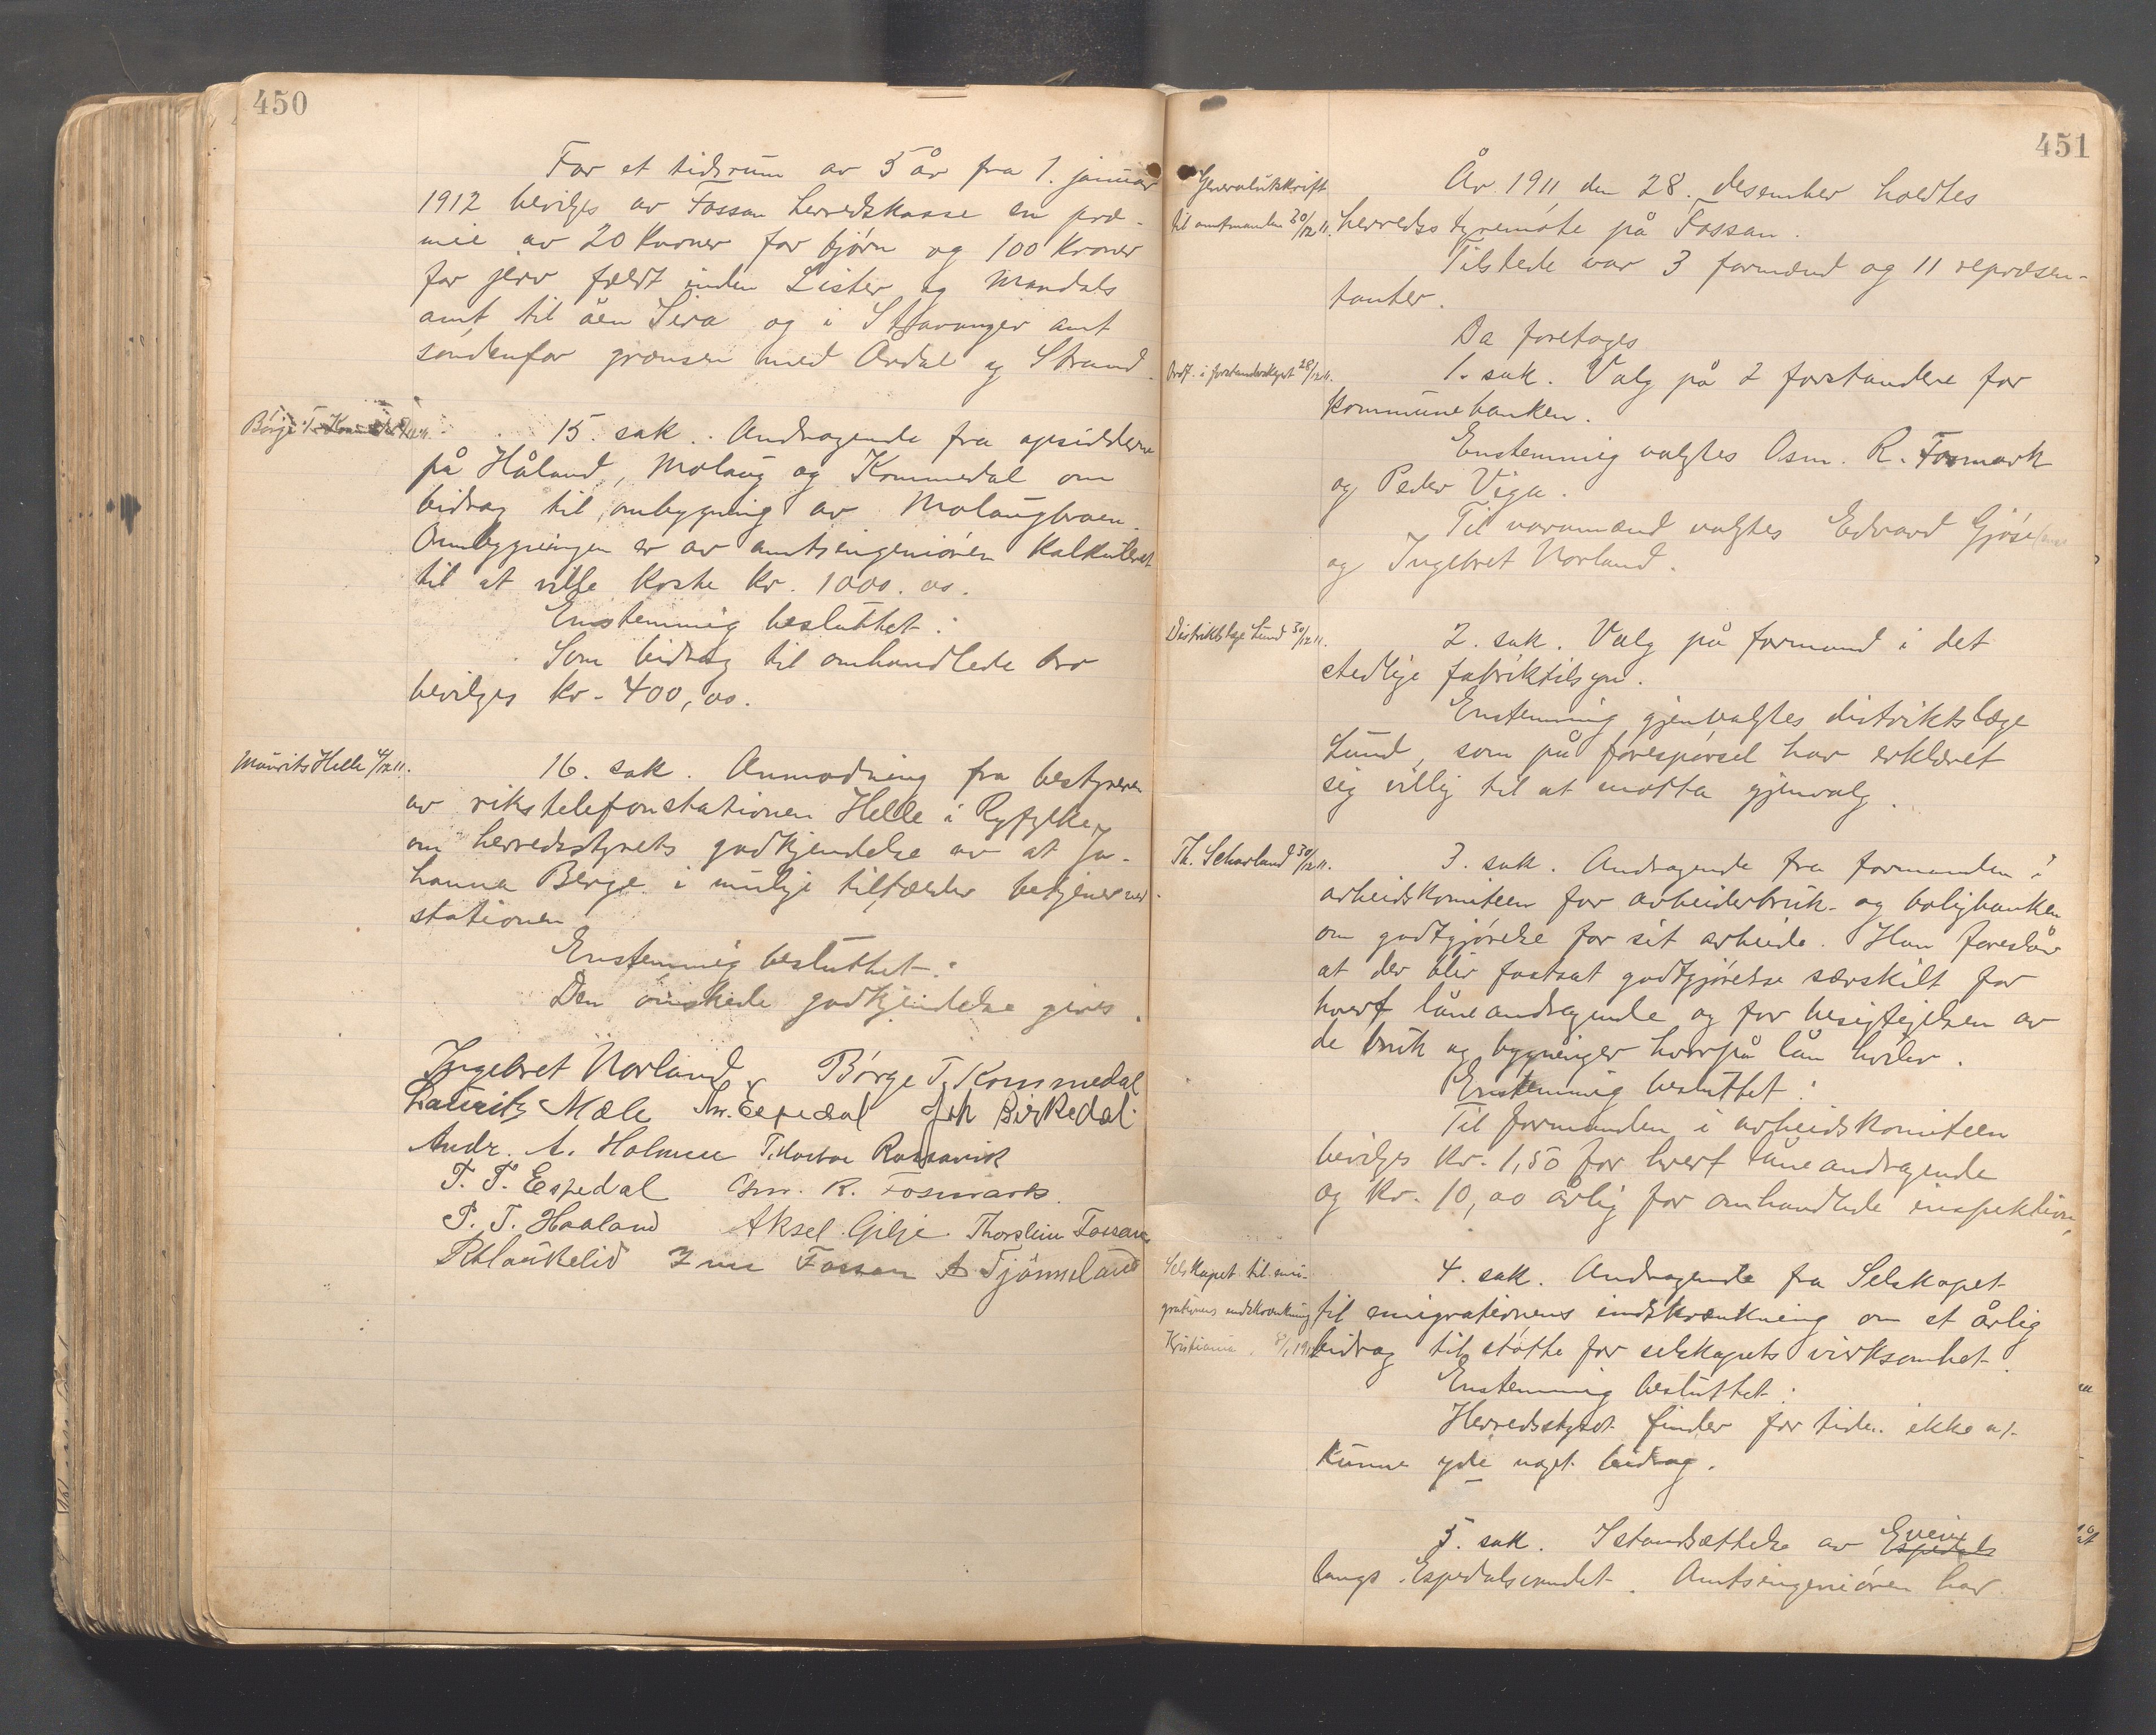 450
For et tidsrum av 5 år fra 1. januar
1912 bevilges av Fossan herredskasse en præ-
mie av 20 kroner for bjørn og 100 kroner
for jerv fældt inden Lister og Mandals
amt til åen Sira og i Stavanger amt
søndenfor grænsen med Årdal og Strand.
Børge T.
15. sak. Andragende fra opsidderne
på Håland, Molaug og Kommedal om
bidrag til ombygning av Molaugbroen.
Ombygningen er av amtsingeniøren kalkuleret
til at ville koste kr. 1000.00.
Enstemmig besluttet:
Som bidrag til omhandlede bro
bevilges kr. 400,00.
Maurits Helle 4/12 11.
16. sak. Anmodning fra bestyreren
av rikstelefonstationen Helle i Ryfylke,
om herredsstyrets godkjendelse av at Jo-
hanna Berge i mulige tilfælder betjener
stationen
Enstemmig besluttet:
Den ønskede godkjendelse gives.
Ingebret Norland Børge T. Kommedal
Lauritz Mæle Th. Espedal Joh Birkedal
Andr. A. Holmen T. Rossavik
T. T. Espedal Osm. R. Fosmark.
P. T. Haaland Aksel Gilje Thorstein Fossan
R Haukelid Fossan A Tjønneland
451
Generalutskrift
til amtmanden 30/12 11.
År 1911 den 28. desember holdtes
herredsstyremøte på Fossan.
Tilstede var 3 formænd og 11 repræsen-
tanter.
Da foretages
Ordf. i forstanderskapet 28/12 11.
1. sak. Valg på 2 forstandere for
kommunebanken.
Enstemmig valgtes Osm. R. Fosmark
og Peder Viga.
Til varamænd valgtes Edvard
og Ingebret Norland.
Distriktslæge Lund 30/12 11.
2. sak. Valg på formand i det
stedlige fabriktilsyn.
Enstemmig gjenvalgtes distriktslæge
Lund, som på forespørsel har erklæret
sig villig til at motta gjenvalg.
Th. Scharland 30/12 11.
3. sak. Andragende fra formanden i
arbeidskomiteen for arbeiderbruk- og boligbanken
om godtgjørelse for sit arbeide. Han foreslår
at der blir fastsat godtgjørelse særskilt for
hvert låneandragende og for besigtigelsen av
de bruk og bygninger hvorpå lån hviler.
Enstemmig besluttet:
Til formanden i arbeidskomiteen
bevilges kr. 1,50 for hvert låneandragende
og kr. 10,00 årlig for omhandlede inspektion.
Selskapet til emi-
grationens indskrænkning
Kristiania
4. sak. Andragende fra Selskapet
til emigrationens indskrænkning om et årlig
bidrag til støtte for selskapets virksomhet.
Enstemmig besluttet:
Herredsstyret finder for tiden ikke at
kunne yde noget bidrag.
5. sak. Istandsættelse av veien
langs Espedalsvandet. Amtsingeniøren har